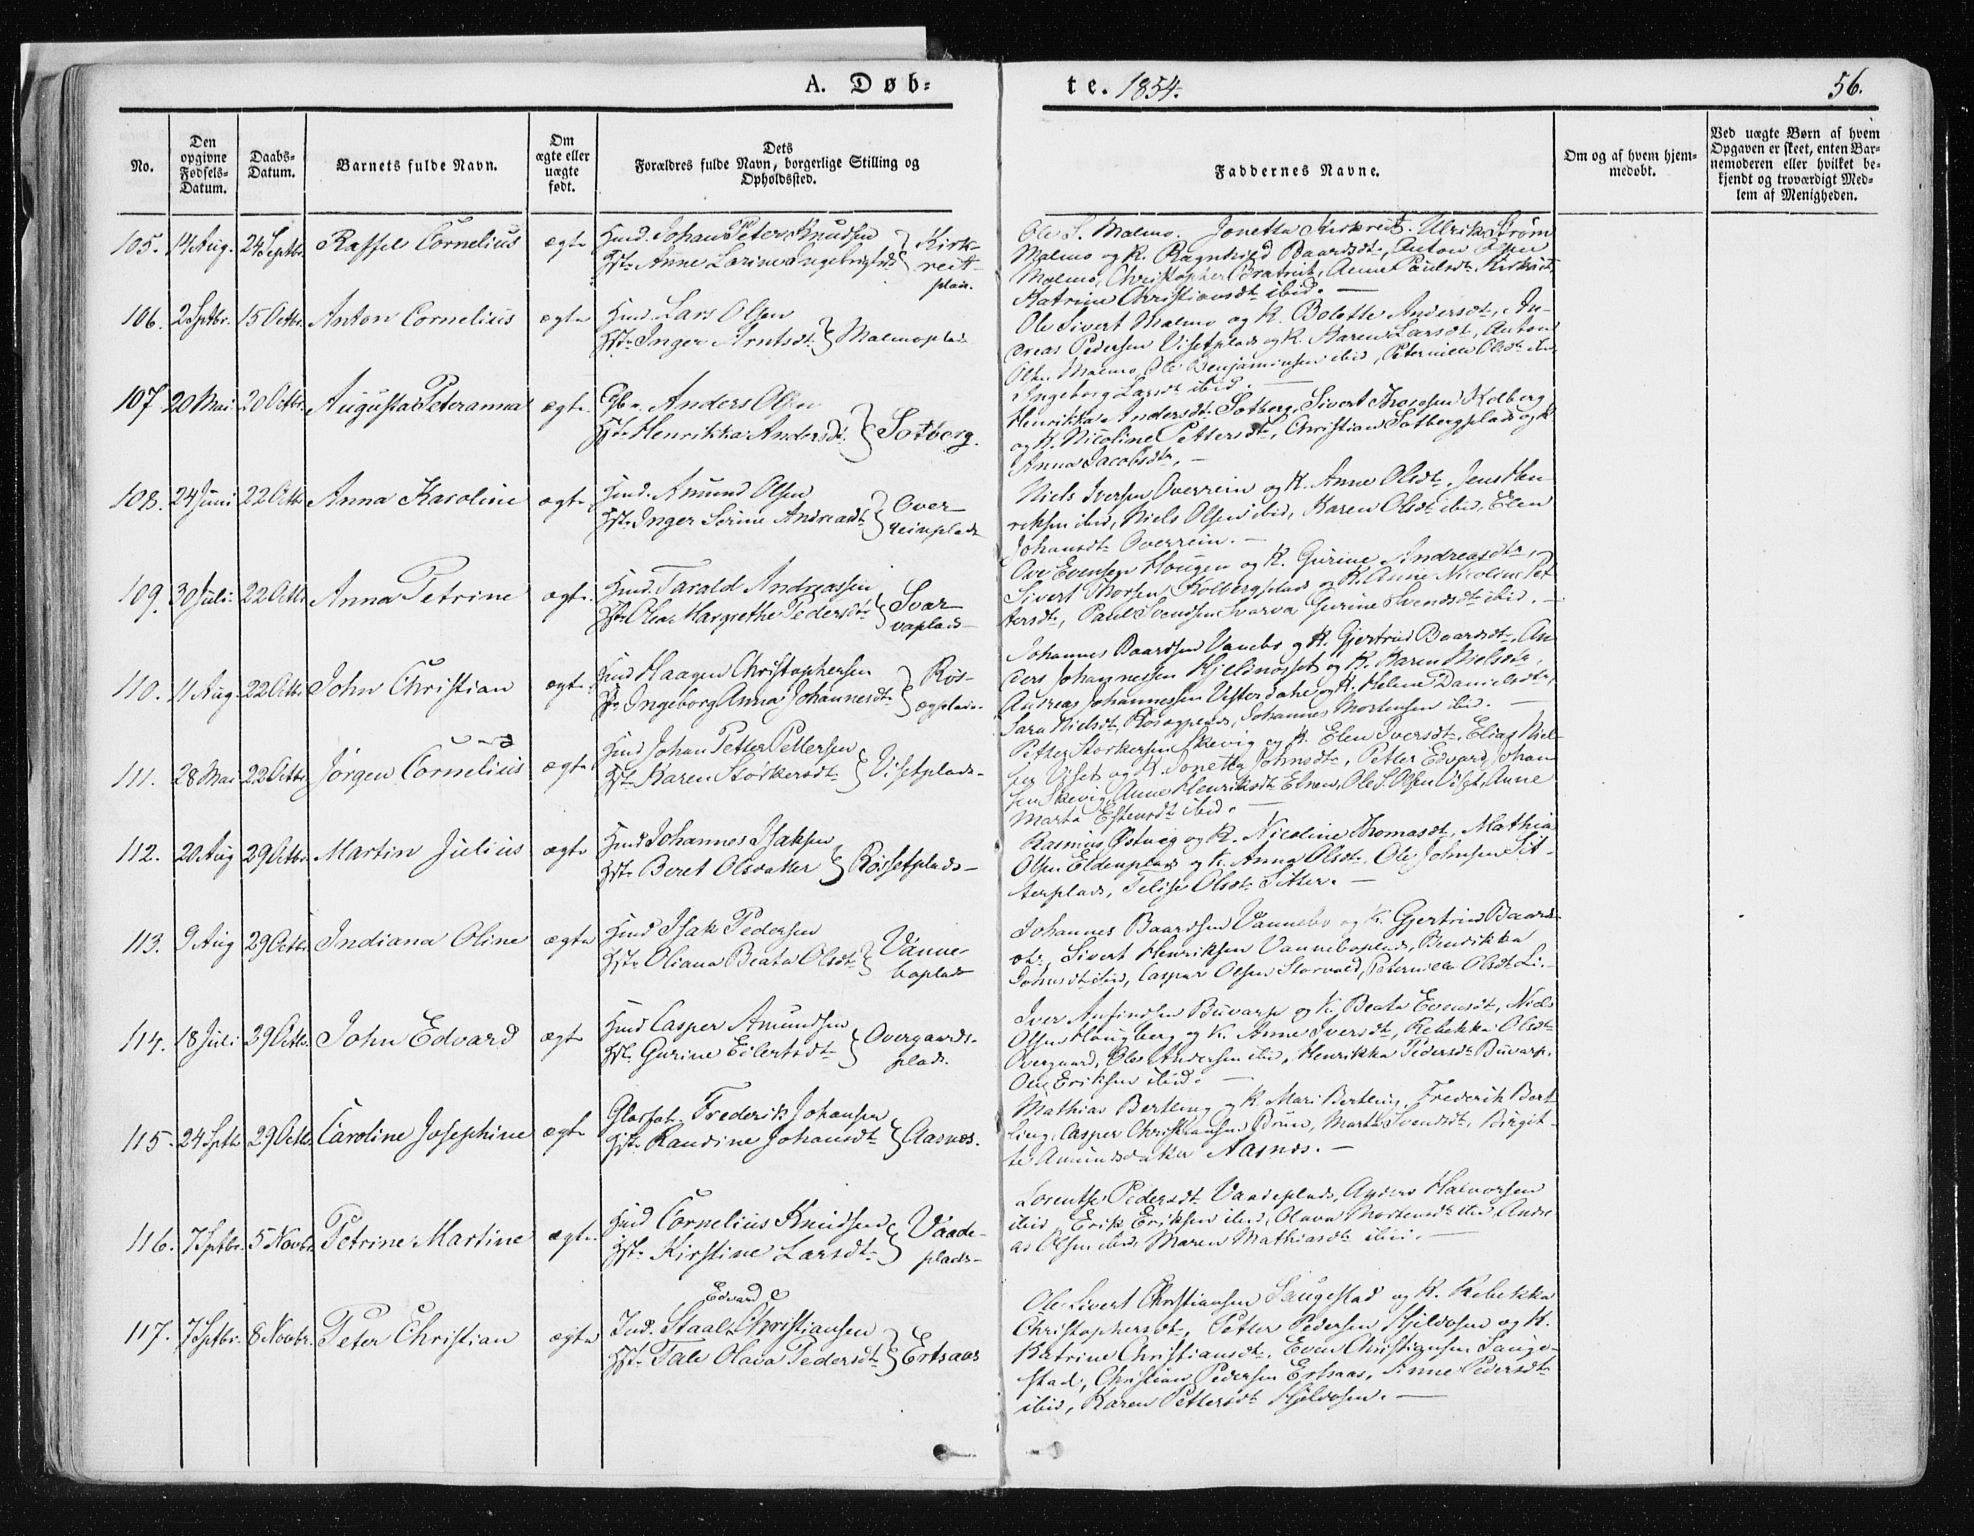 A. Døb-
te. 1854.
56.
No.
Den opgivne Fødsels-Datum.
Daabs-Datum.
Barnets fulde Navn.
Om ægte eller uægte født.
Dets Forældres fulde Navn, borgerlige Stilling og Opholdssted.
Faddernes Navne.
Om og af hvem hjem-
medøbt.
Ved uægte Børn af hvem
Opgaven er skeet, enten Bar-
nemoderen eller hvilket be-
kjendt og troværdigt Med-
lem af Menigheden.
105. 14 Aug. 24 Septbr. Cornelius ægte
Hmd. Johan Peter Knudsen
Hst. Anne Lorine Kirk-
reit-
plads.
Ole S. Malmo. Jonetta Ulrik Strøm
Malmo og K. Ragnhild Baardsdt., Anton
Malmo, Christopher Anne Paulsdt.
Katrine Christiansdt. ibid. —
106. 2 Septbr. 15 Octbr. Anton Cornelius ægte
Hmd. Lars Olsen
Hst. Inger Arntsdt. } Malmoplads
Ole Sivert Malmo og K. Bolette Andersdt., An-
dreas Pedersen Visetplads og K. Karen Larsdt., Anton
Olsen Malmo, Ole Benjaminsen ibid, Peternille Olsdt. ibid
Ingeborg Larsdt. ibid. —
107 20 Mai 20 Octbr. Augusta Peteranna ægte
Gbr. Anders Olsen
Hst. Henrikka Andersdt. } Solberg.
Henrikka Andersdt. Solberg, Sivert Kolberg
og K. Nicoline Pettersdt., Christian Solbergplads og K
Anna Jacobsdt. —
108. 24 Juni 22 Octbr Anna Karoline ægte
Hmd. Amund Olsen
Hst. Inger Serine Andreasdt. } Over-
reinplads
Niels Iversen Overrein og K. Anne Olsdt., Jens Hen-
riksen ibid, Niels Olsen ibid, Karen Olsdt. ibid, Elen
Johansdt. Overrein. —
109. 30 Juli 22 Octbr Anna Petrine ægte
Hmd. Tarald Andreassen
Hst. Olea Margrethe Pedersdt. } Svar-
vaplads
Ove Evensen Hougen og K. Gurine Andreasdt.,
Sivert Morsen Kolbergplads og K. Anne Nicoline Pet-
tersdt., Paul Svendsen Svarva Gurine Svendsdt. ibid. —
110. 11 Aug 22 Octbr John Christian ægte
Hmd Haagen Christophersen
Hst Ingeborg Anna Johannesdt. } Røs-
egplads
Johannes Baardsen Vanebo og K. Gjertrud Baardsdt., An-
ders Johannessen og K. Karen Nielsdt.,
Andreas Johannessen og K. Helena Danielsdt.,
Sara Nielsdt. Røsegplads, Johannes Mortensen ibid. —
111. 28 Mai 22 Octbr Jørgen Cornelius ægte
Hmd Johan Petter Pettersen
Hst. Karen Størkersdt. } Visetplads-
Petter Størkersen Skevig og K. Elen Iversdt., Elias Niel-
sen Viset og K. Jonetta Johnsdt., Petter Edvard Johan-
sen Skevig, Anne Henriksdt. Elnan, Ole S. Olsen Viset, Anne
Marta Estensdt. ibid. —
112. 20 Aug 29 Octbr Martin Julius ægte
Hmd Johannes Isaksen
Hst. Beret Olsdatter } Røissetplads-
Rasmus Østveg og K. Nicoline Thomasdt., Mathias
Olsen Eldenplads og K. Anna Olsdt. Ole Johnsen Sit-
terplads, Olsdt Sitter. —
113. 9 Aug 29 Octbr Indiana Oline ægte
Hmd Isak Pedersen
Hst. Oliana Beata Olsdt. } Vanne-
boplads
Johannes Baardsen Vannebo og K. Gjertrud Baards-
dt., Sivert Henriksen Vanneboplads, Bendikka
Johnsdt. ibid, Caspar Olsen Peternille Olsdt
114. 18 Juli 29 Octbr John Edvard ægte
Hmd Casper Amundsen
Hst. Gurine Eilertsdt. } Overgaards-
plads.
Iver Anfindsen Buvarp og K. Beata Evensdt., Niels
Olsen Hougberg og K. Anne Iversdt., Rebekka Olsdt.
Overgaard, Ole Andersen ibid, Henrikka Pedersdt. Buvarp.
Ole Eriksen ibid. —
115. 24 Septbr 29 Octbr Caroline Josephine ægte
Frederik Johansen
Hst. Randine Johansdt. } Aasnes.
Mathias Bertling og K. Mari Bertling, Frederik Bert-
ling, Casper Christiansen Marta Svendsdt., Birgit-
te Amundsdatter Aasnes. —
116. 7 Septbr. 5 Novbr Petrine Martine ægte
Hmd Cornelius Knudsen
Hst. Kirstine Larsdt. } Vaade-
plads-
Lorentse Pedersdt. Vaadeplads, Anders Halvorsen
ibid, Erik Eriksen ibid, Olava Mortensdt. ibid, Andre-
as Olsen ibid, Maren Mathiasdt. ibid. —
117. 7 Septbr. 8 Novbr. Peter Christian ægte
Edvard
Ind. Staal Christiansen
Hst. Tale Olava Pedersdt. } Ertsaas
Ole Sivert Christiansen Saugestad og K. Rebekka
Christophersdt., Petter Pedersen og K.
Katrine Christiansdt., Even Christiansen Sauge-
stad, Christian Pedersen Ertsaas, Anne Pedersdt.
ibid, Karen Pettersdt. —